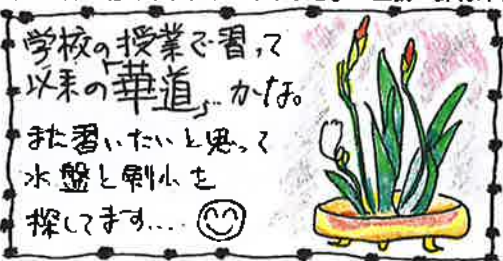 学校の授業で習って
以来の「華道」…かな。
また習いたいと思って
水盤と剣山を
探してます....